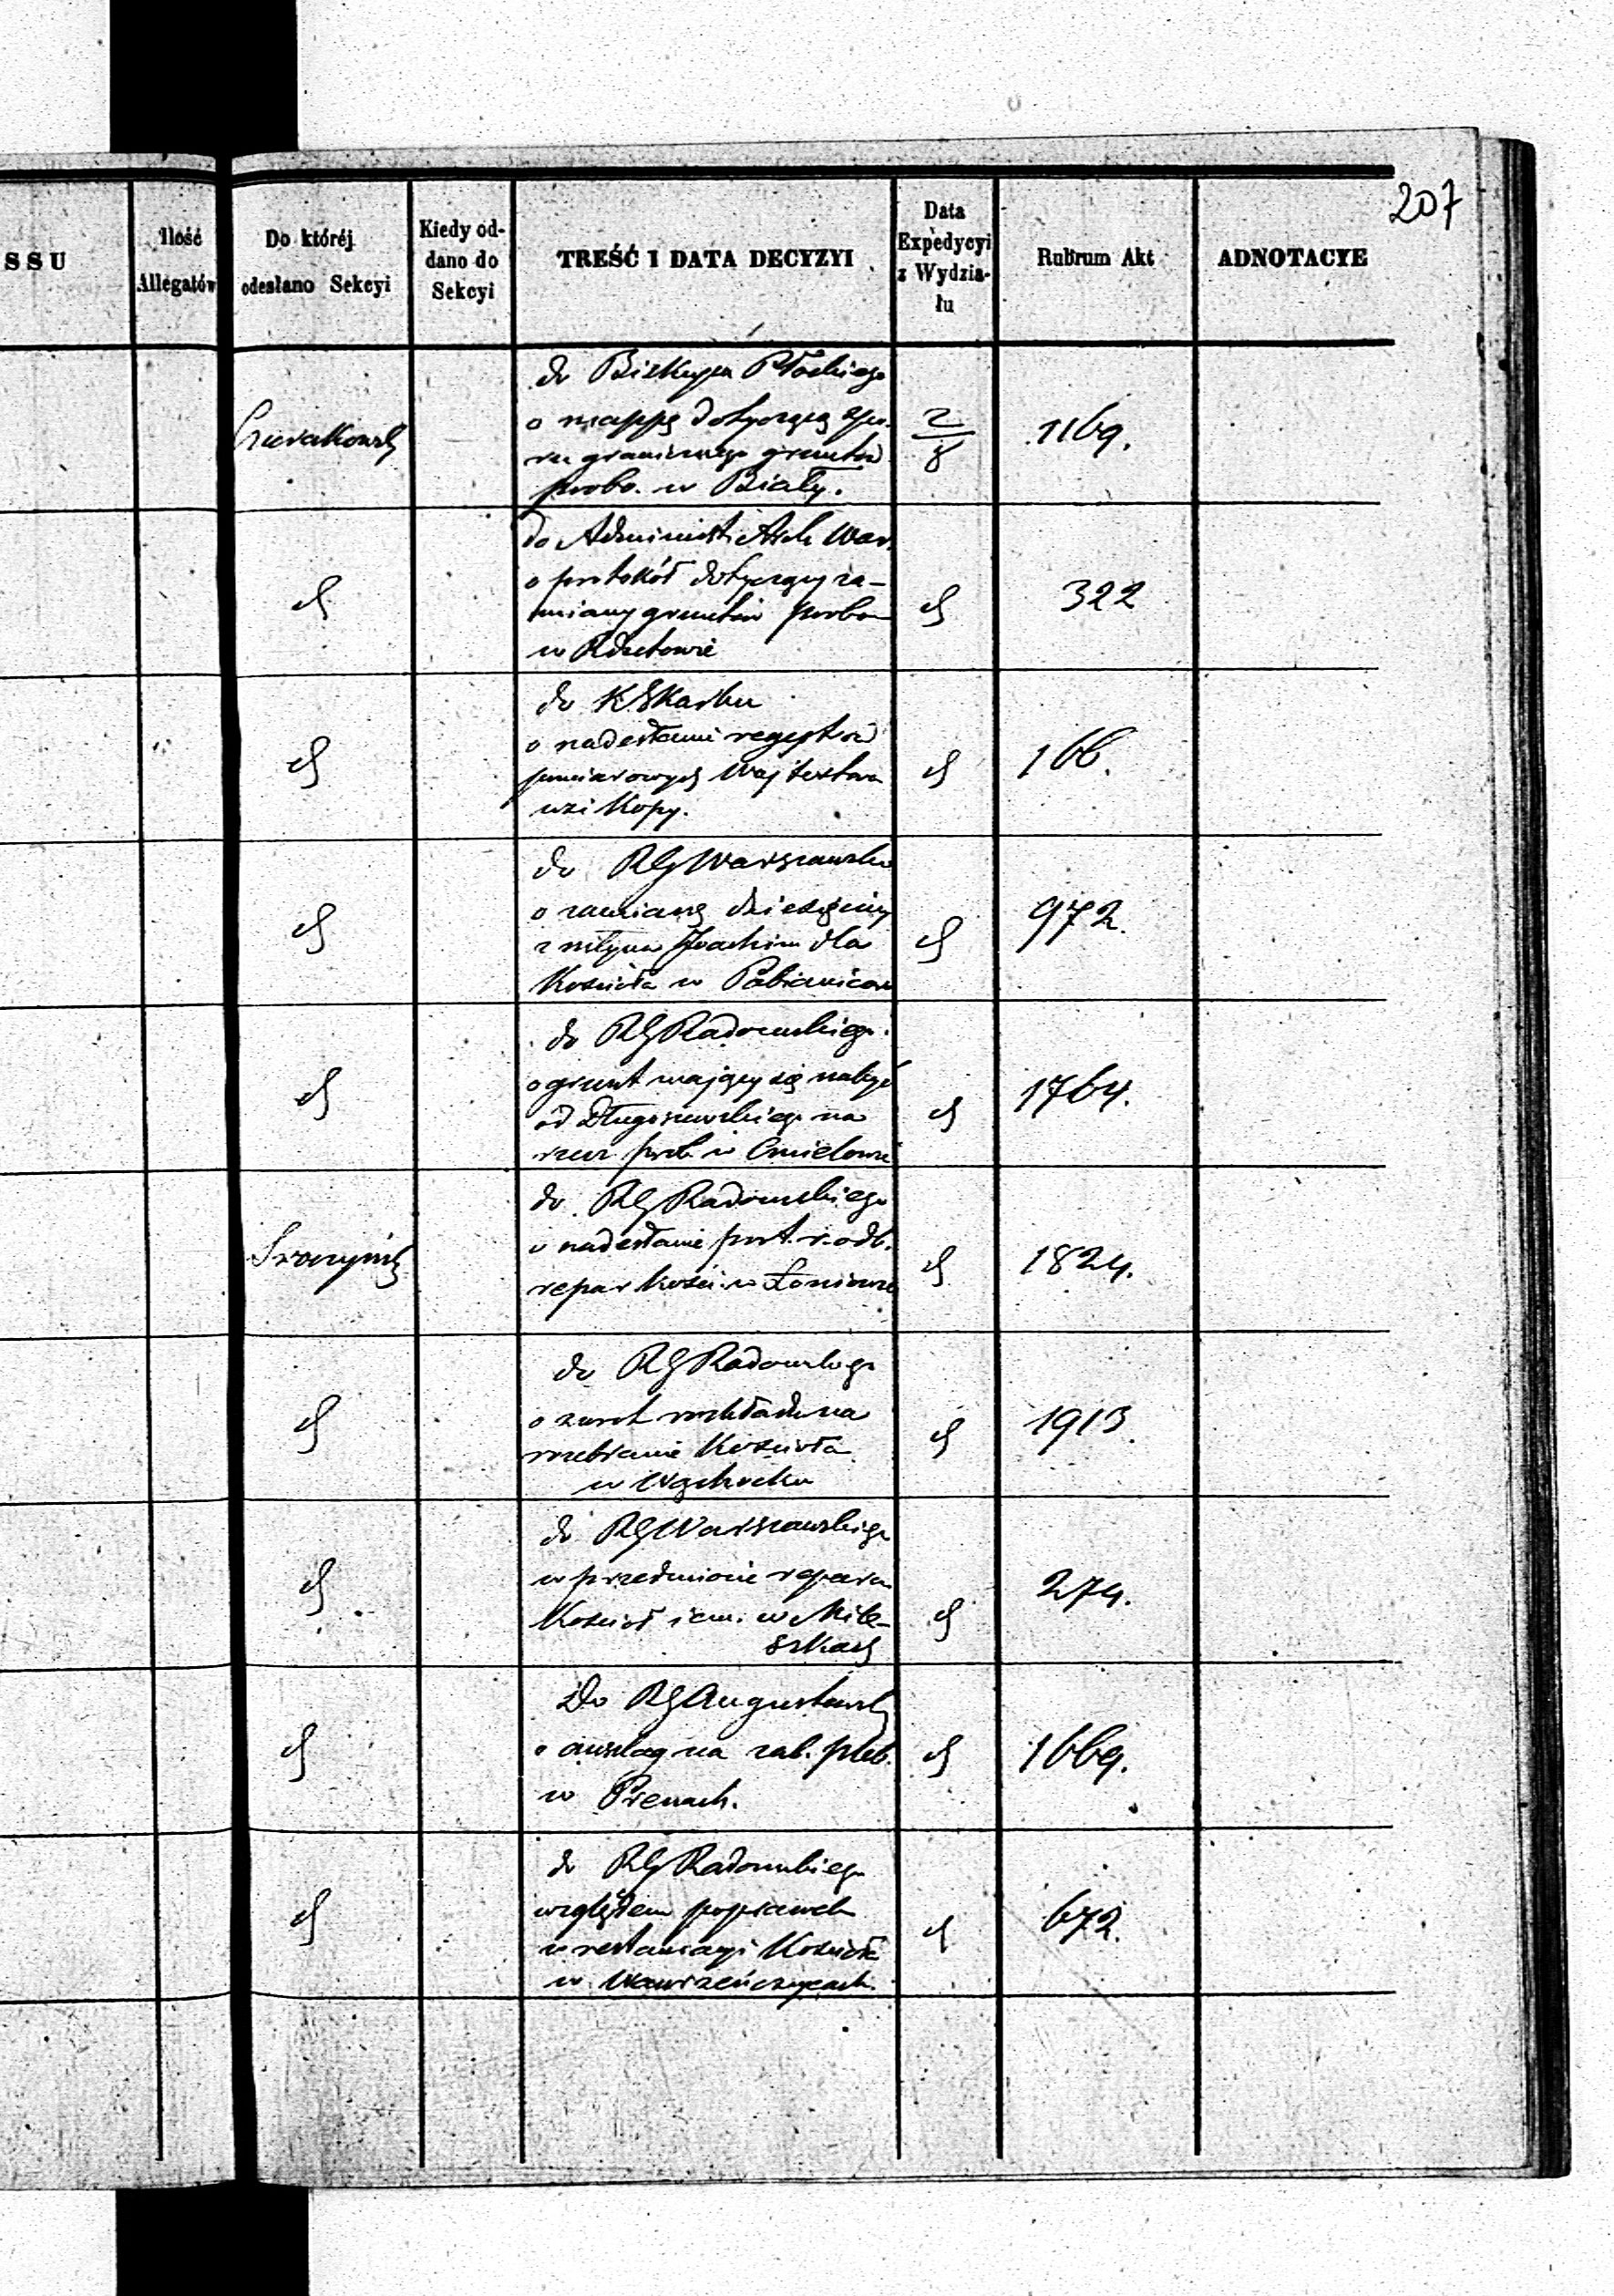 207
SSU
Ilość Allegatów
Do któréj odesłano Sekcyi
Kiedy oddano do Sekcyi
TREŚĆ I DATA DECYZYI
Data Expedycyi z Wydziału
Rubrum Akt
ADNOTACYE
do Biskupa Płockiego
o mappę dotyczącą spo-
ru granicznego gruntów
probo. w Biały.
2/8
1169.
do Administ. Arch. War.
o protokół dotyczący za-
miany gruntów probo
w Rdutowie
322
do K Skarbu
o nadesłanie regestrów
pomiarowych Wojtostwa
wsi Kopy.
166.
do RG Warszawsk
o zamianę dziesięciny
z młyna Joachim dla
Kościoła w Pabianicach
972.
do RG Radomskiego.
o grunt mający się nabyć
od Długoszewskiego na
rzecz prob. w Cmielowie
1764.
do RG Radomskiego
o nadesłanie prot. r. odb.
repar kości. w Łoniowie
1824.
do RG Radomskigo
o zwrot rozkładu na
rozebranie Kościoła
w Wąchocku
1913.
do RG Warszawskigo
w przedmiocie repara
Kościoł i em. w Mile-
szkach
274.
Do RG Augustowsk
o anszlag na zab. pleb.
w Prenach.
1669.
do RG Radomskiego
względem poprawek
w restauracyi Kościoła
w Wawrzeńczycach.
672.